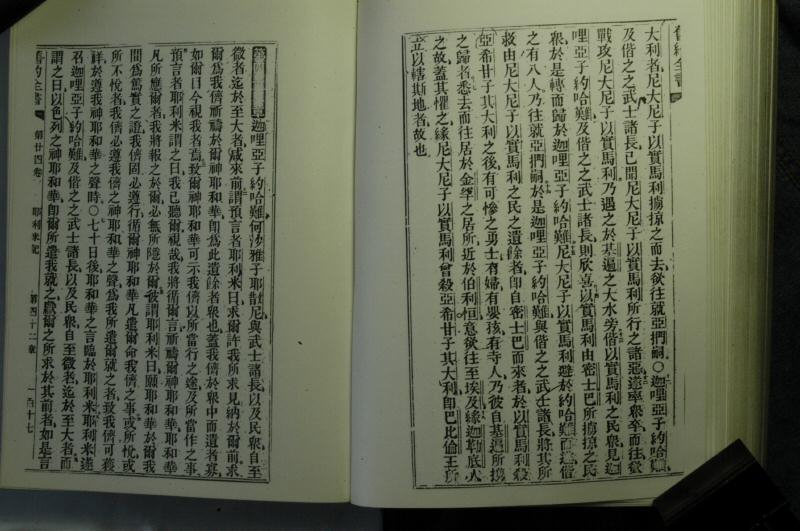 舊約全書
大利者尼大尼子以實馬利擄掠之而去欲往就亞捫嗣○迦哩亞子約哈難
及偕之之武士諸長已聞尼大尼子以實馬利所行之諸惡遂率眾卒而往欲
戰攻尼大尼子以實馬利乃遇之於基遍之大水旁偕以實馬利之民眾見迦
哩亞子約哈難及偕之之武士諸長則欣喜以實馬利由密士巴所擄掠之民
眾於是轉而歸於迦哩亞子約哈難尼大尼子以實馬利避於約哈難而遁偕
之有八人乃往就亞捫嗣於是迦哩亞子約哈難與偕之之武士諸長將其所
救由尼大尼子以實馬利之民之遺餘者即自密士巴而來者於以實馬利殺
亞希甘子其大利之後有可慘之勇士有婦有嬰孩有寺人乃彼自基遍所攜
之歸者悉去而往居於金罕之居所近於伯利恒意欲往至埃及緣迦勒底人
之故蓋其懼之緣尼大尼子以實馬利曾殺亞希甘子其大利即巴比倫王所
立以轄斯地者故也
章迦哩亞子約哈難何沙雅子耶散尼與武士諸長以及民眾自至
微者迄於至大者咸來前謂預言者耶利米曰求爾許我所求見納於爾前求
爾為我儕祈禱爾神耶和華即為此遺餘者眾也蓋我儕於眾中而遺者寡
如爾目今視我者焉致爾神耶和華可示我儕以所當行之途及所當作之事
預言者耶利米謂之曰我已聽爾視哉我將循爾言祈禱爾神耶和華耶和華
凡所應爾者我將報之於爾必無所隱於爾彼謂耶利米曰願耶和華於爾我
間為篤實之證我儕固必遵行循爾神耶和華凡遣爾命我儕之事或所悅或
所不悅者我儕必遵我儕之神耶和華之聲為我所遣爾就之者致我儕可獲
祥於遵我神耶和華之聲時○七十日後耶和華之言臨於耶利米耶利米遂
召迦哩亞子約哈難及偕之之武士諸長以及民眾自至微者迄於至大者而
謂之曰以色列之神耶和華即爾所遣我就之獻爾之所求於其前者如是言
舊約全書 第廿四卷 耶利米記 第四十二章 一百十七